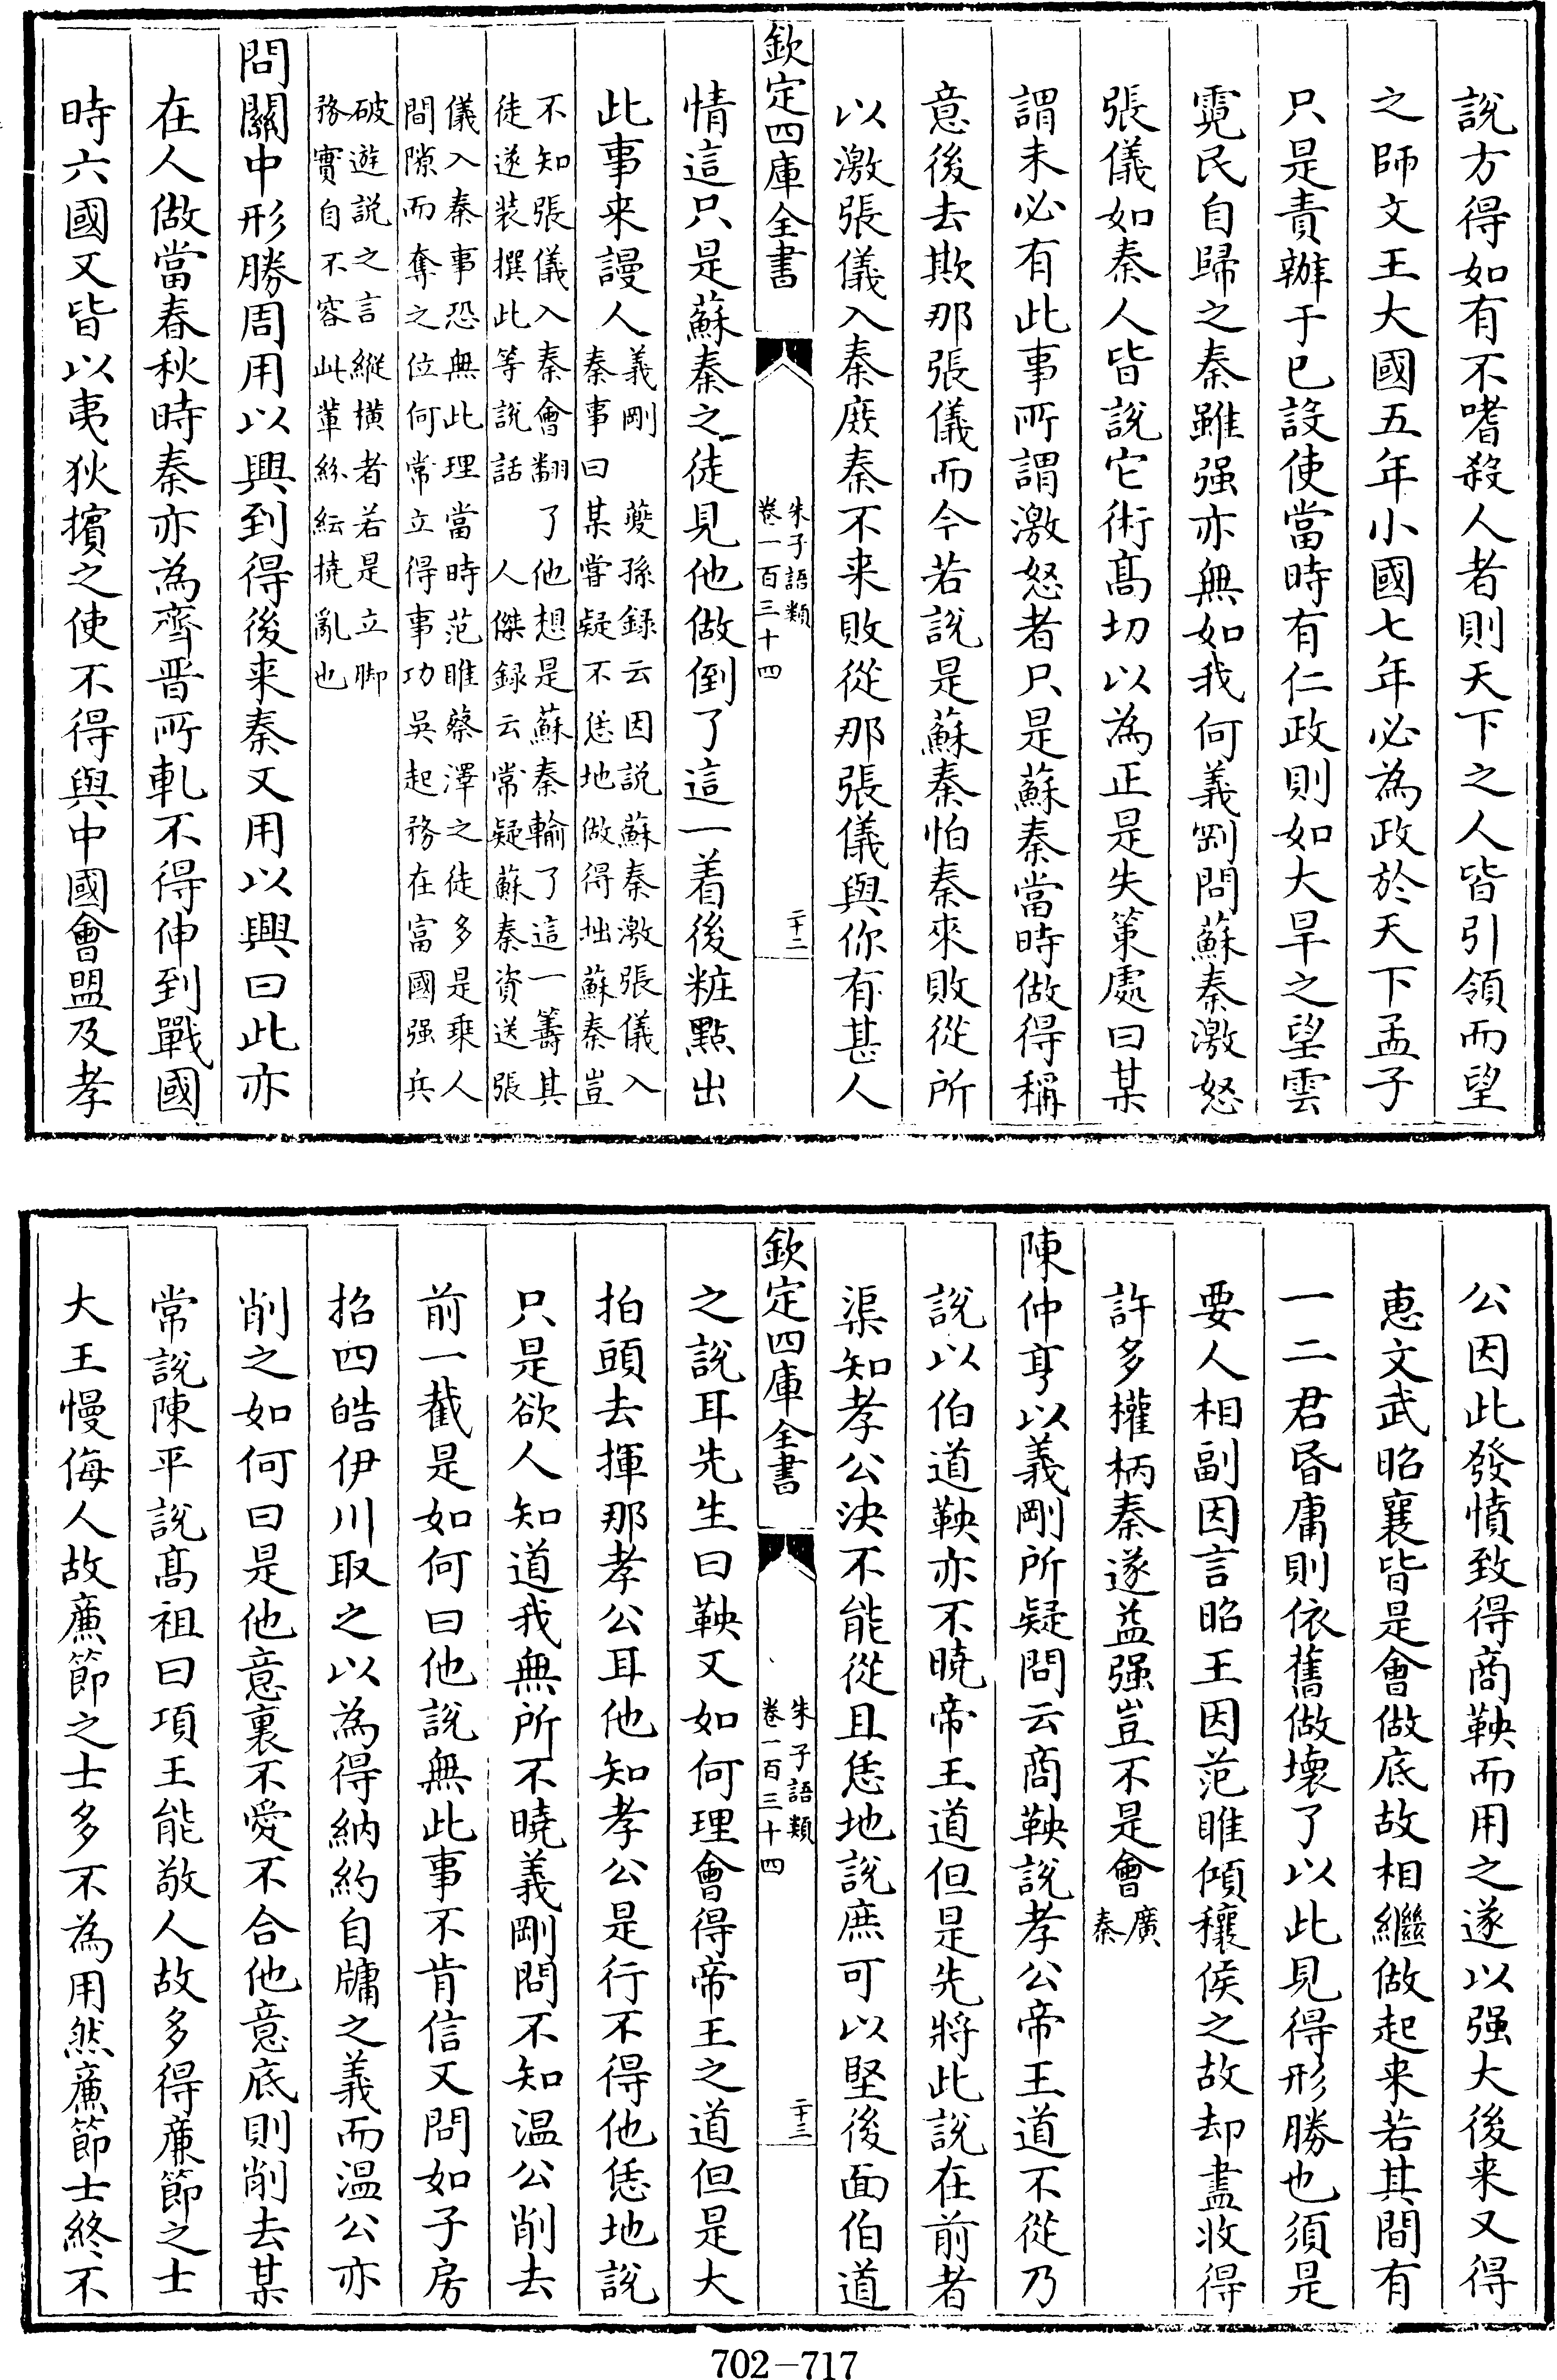 説方得如有不嗜殺人者則天下之人皆引領而望
之師文王大國五年小國七年必為政於天下孟子
只是責辦于已設使當時有仁政則如大旱之望雲
霓民自歸之秦雖强亦無如我何義剛問蘇秦激怒
張儀如秦人皆說它術髙切以為正是失策處曰某
謂未必有此事所謂激怒者只是蘇秦當時做得稱
意後去欺那張儀而今若說是蘇秦怕秦來敗從所
以激張儀入秦庻秦不来敗從那張儀與你有甚人
欽定四庫全書
朱子語類
卷一百三十四
二十二
情這只是蘇秦之徒見他做倒了這一着後粧點出
此事来謾人
義剛　夔孫録云因説蘇秦激張儀入
秦事曰某嘗疑不恁地做得拙蘇秦豈
不知張儀入秦會翻了他想是蘇秦輸了這一籌其
徒遂装撰此等說話　人傑録云常疑蘇秦資送張
儀入秦事恐無此理當時范睢蔡澤之徒多是乘人
間隙而奪之位何常立得事功吳起務在富國强兵
破遊説之言縱横者若是立脚
務實自不容此輩紛紜撓亂也
問關中形勝周用以興到得後来秦又用以興曰此亦
在人做當春秋時秦亦為齊晋所軋不得伸到戰國
時六國又皆以夷狄擯之使不得與中國會盟及孝
公因此發憤致得商鞅而用之遂以强大後来又得
惠文武昭襄皆是會做底故相繼做起来若其間有
一二君昏庸則依舊做壊了以此見得形勝也須是
要人相副因言昭王因范睢傾穰侯之故却盡收得
許多權柄秦遂益强豈不是會
廣
秦
陳仲亨以義剛所疑問云商鞅説孝公帝王道不從乃
説以伯道鞅亦不曉帝王道但是先將此説在前者
渠知孝公決不能從且恁地說庶可以堅後面伯道
欽定四庫全書
朱子語類
卷一百三十四
二十三
之說耳先生曰鞅又如何理會得帝王之道但是大
拍頭去揮那孝公耳他知孝公是行不得他恁地說
只是欲人知道我無所不曉義剛問不知溫公削去
前一截是如何曰他說無此事不肯信又問如子房
招四皓伊川取之以為得納約自牖之義而溫公亦
削之如何曰是他意裏不愛不合他意底則削去某
常說陳平說髙祖曰項王能敬人故多得亷節之士
大王慢侮人故亷節之士多不為用然亷節士終不
702—717